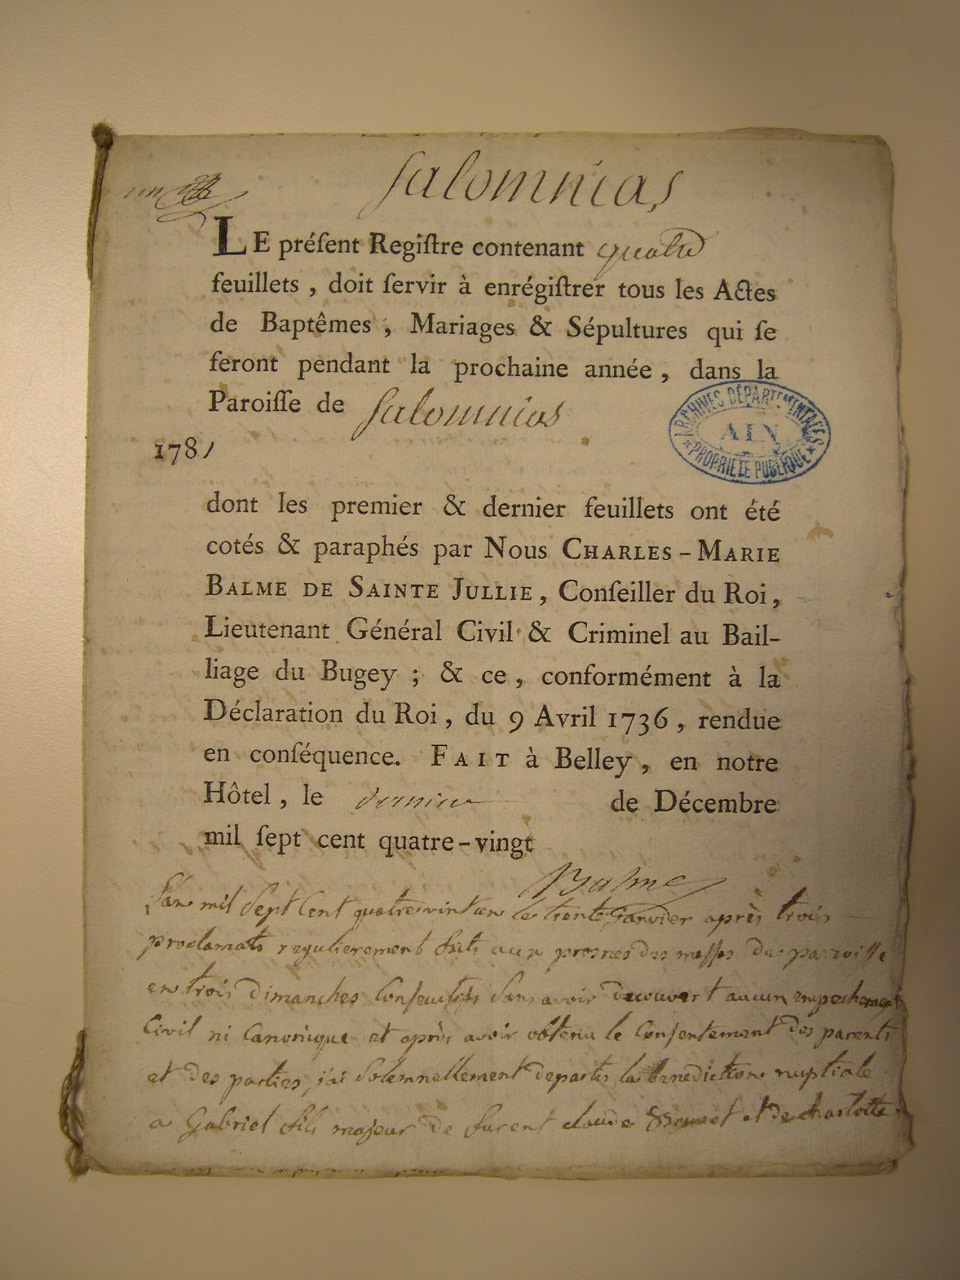 Salomnias
un
LE préſent Regiſtre contenant quatre
feuillets , doit ſervir à enrégiſtrer tous les Actes
de Baptêmes , Mariages & Sépultures qui ſe
feront pendant la prochaine année , dans la
Paroiſſe de Salomnias
ARCHINES DÉPARTEMENTALES
AIN
PROPRIETE PUBLIQUE
1781
dont les premier & dernier feuillets ont été
cotés & paraphés par Nous CHARLES-MARIE
BALME DE SAINTE JULLIE , Conſeiller du Roi,
Lieutenant Général Civil & Criminel au Bail-
liage du Bugey ; & ce , conformément à la
Déclaration du Roi , du 9 Avril 1736 , rendue
en conſéquence. FAIT à Belley , en notre
Hôtel , le dernier de Décembre
mil ſept cent quatre-vingt
Balme
L'an mil Sept Cent quatre vint un le trente Janvier après trois
proclamats regulierement faits aux prosnes des messes de paroisse
en trois dimanches Consecutifs Sans avoir decouvert aucun empechement
Civil ni Canonique et après avoir obtenu le Consentement des parents
et des parties, j'ai Solemnellement departis la benediction nuptiale
a Gabriel fils majeur de furent claude et de charlotte